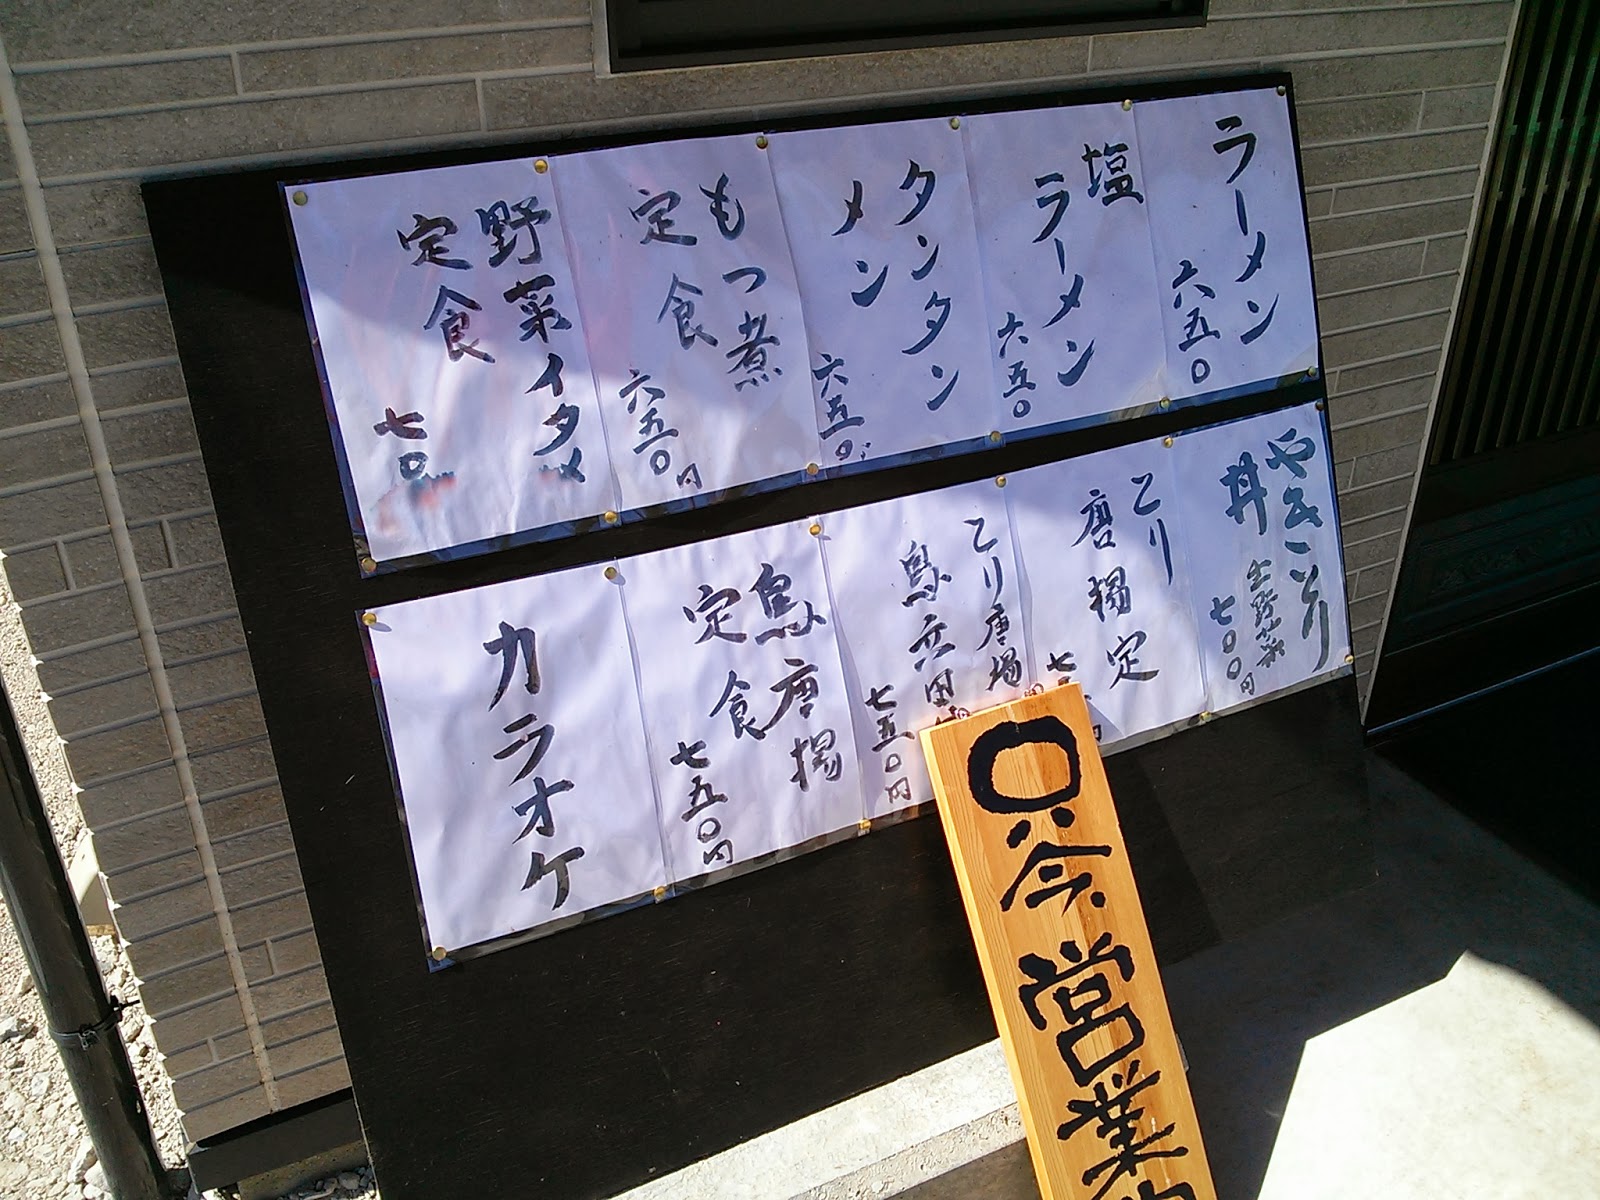 ラーメン
六五〇
塩
ラーメン
六五〇
タンタン
メン
六五〇
もつ煮
定食
六五〇円
野菜イタメ
定食
七〇
やきとり
丼
七〇〇円
とり
唐揚定
とり唐揚
七五〇円
鳥唐揚
定食
七五〇円
カラオケ
只今営業